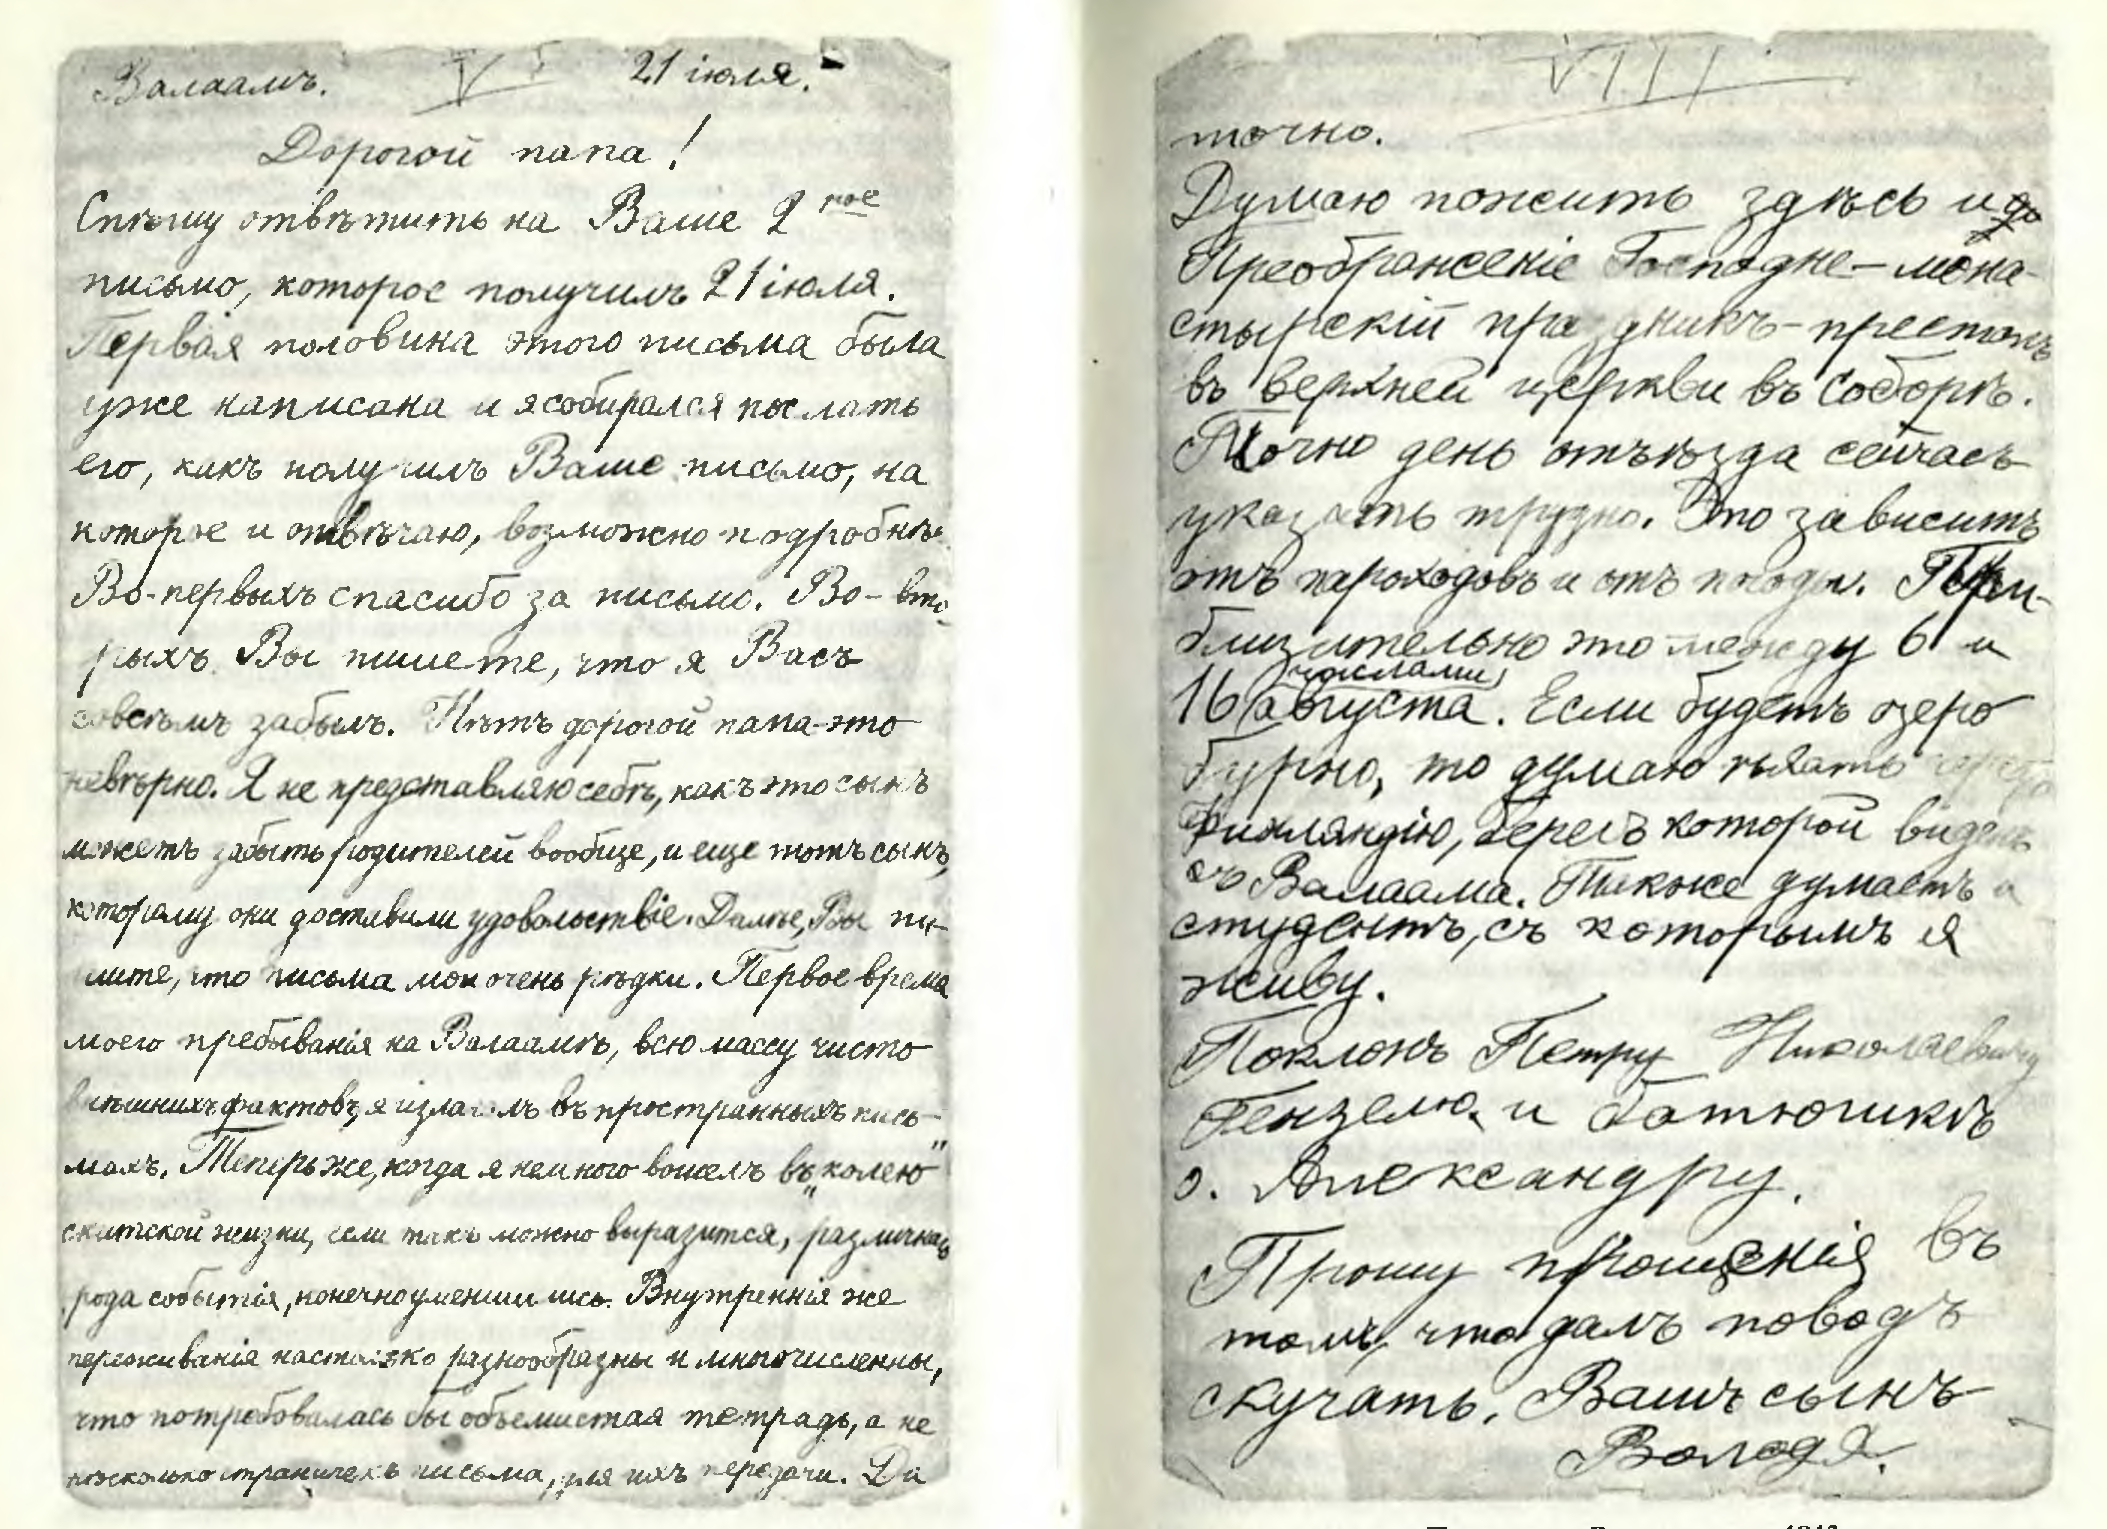 Валаамъ. V 21 іюля.
Дорогой папа!
Спѣшу отвѣтить на Ваше 2ное
письмо, которое получилъ 21 іюля.
Первая половина этого письма была
уже написана и я собирался послать
его, какъ получилъ Ваше письмо, на
которое и отвѣчаю, возможно подробнѣе.
Во-первыхъ спасибо за письмо. Во-вто-
рыхъ Вы пишете, что я Васъ
совсѣмъ забылъ. Нѣтъ дорогой папа-это
невѣрно. Я не представляю себѣ, какъ это сынъ
можетъ забыть родителей вообще, и еще тотъ сынъ,
которому они доставили удовольствіе. Далѣе, Вы пи-
шите, что письма мои очень рѣдки. Первое время
моего пребыванія на Валаамѣ, всю массу чисто
внѣшнихъ фактовъ, я излагалъ въ пространныхъ пись-
махъ. Теперь же, когда я немного вошелъ въ „колею"
скитской жизни, если такъ можно выразится, различнаго
рода событія, конечно уменшились. Внутреннія же
переживанія настолько разнообразны и многочисленны,
что потребовалась бы объемистая тетрадь, а не
нѣсколько страничекъ письма, для ихъ передачи. Да
VIII
точно.
Думаю пожить здѣсь и до
Преображеніе Господне-мона-
стырскій праздникъ-престолъ
въ верхней церкви въ соборѣ.
Точно день отъѣзда сейчасъ
указать трудно. Это зависитъ
отъ пароходовъ и отъ погоды. При-
близительно это между 6 и
16 числами августа. Если будетъ озеро
бурно, то думаю ѣхать через
Финляндію, берегъ которой виденъ
съ Валаама. Также думаетъ и
студентъ, съ которымъ я
живу.
Поклонъ Петру Николаевичу
Гензелю и батюшкѣ
о. Александру.
Прошу прощенія въ
томъ, что далъ поводъ
скучать. Вашъ сынъ
Володя.